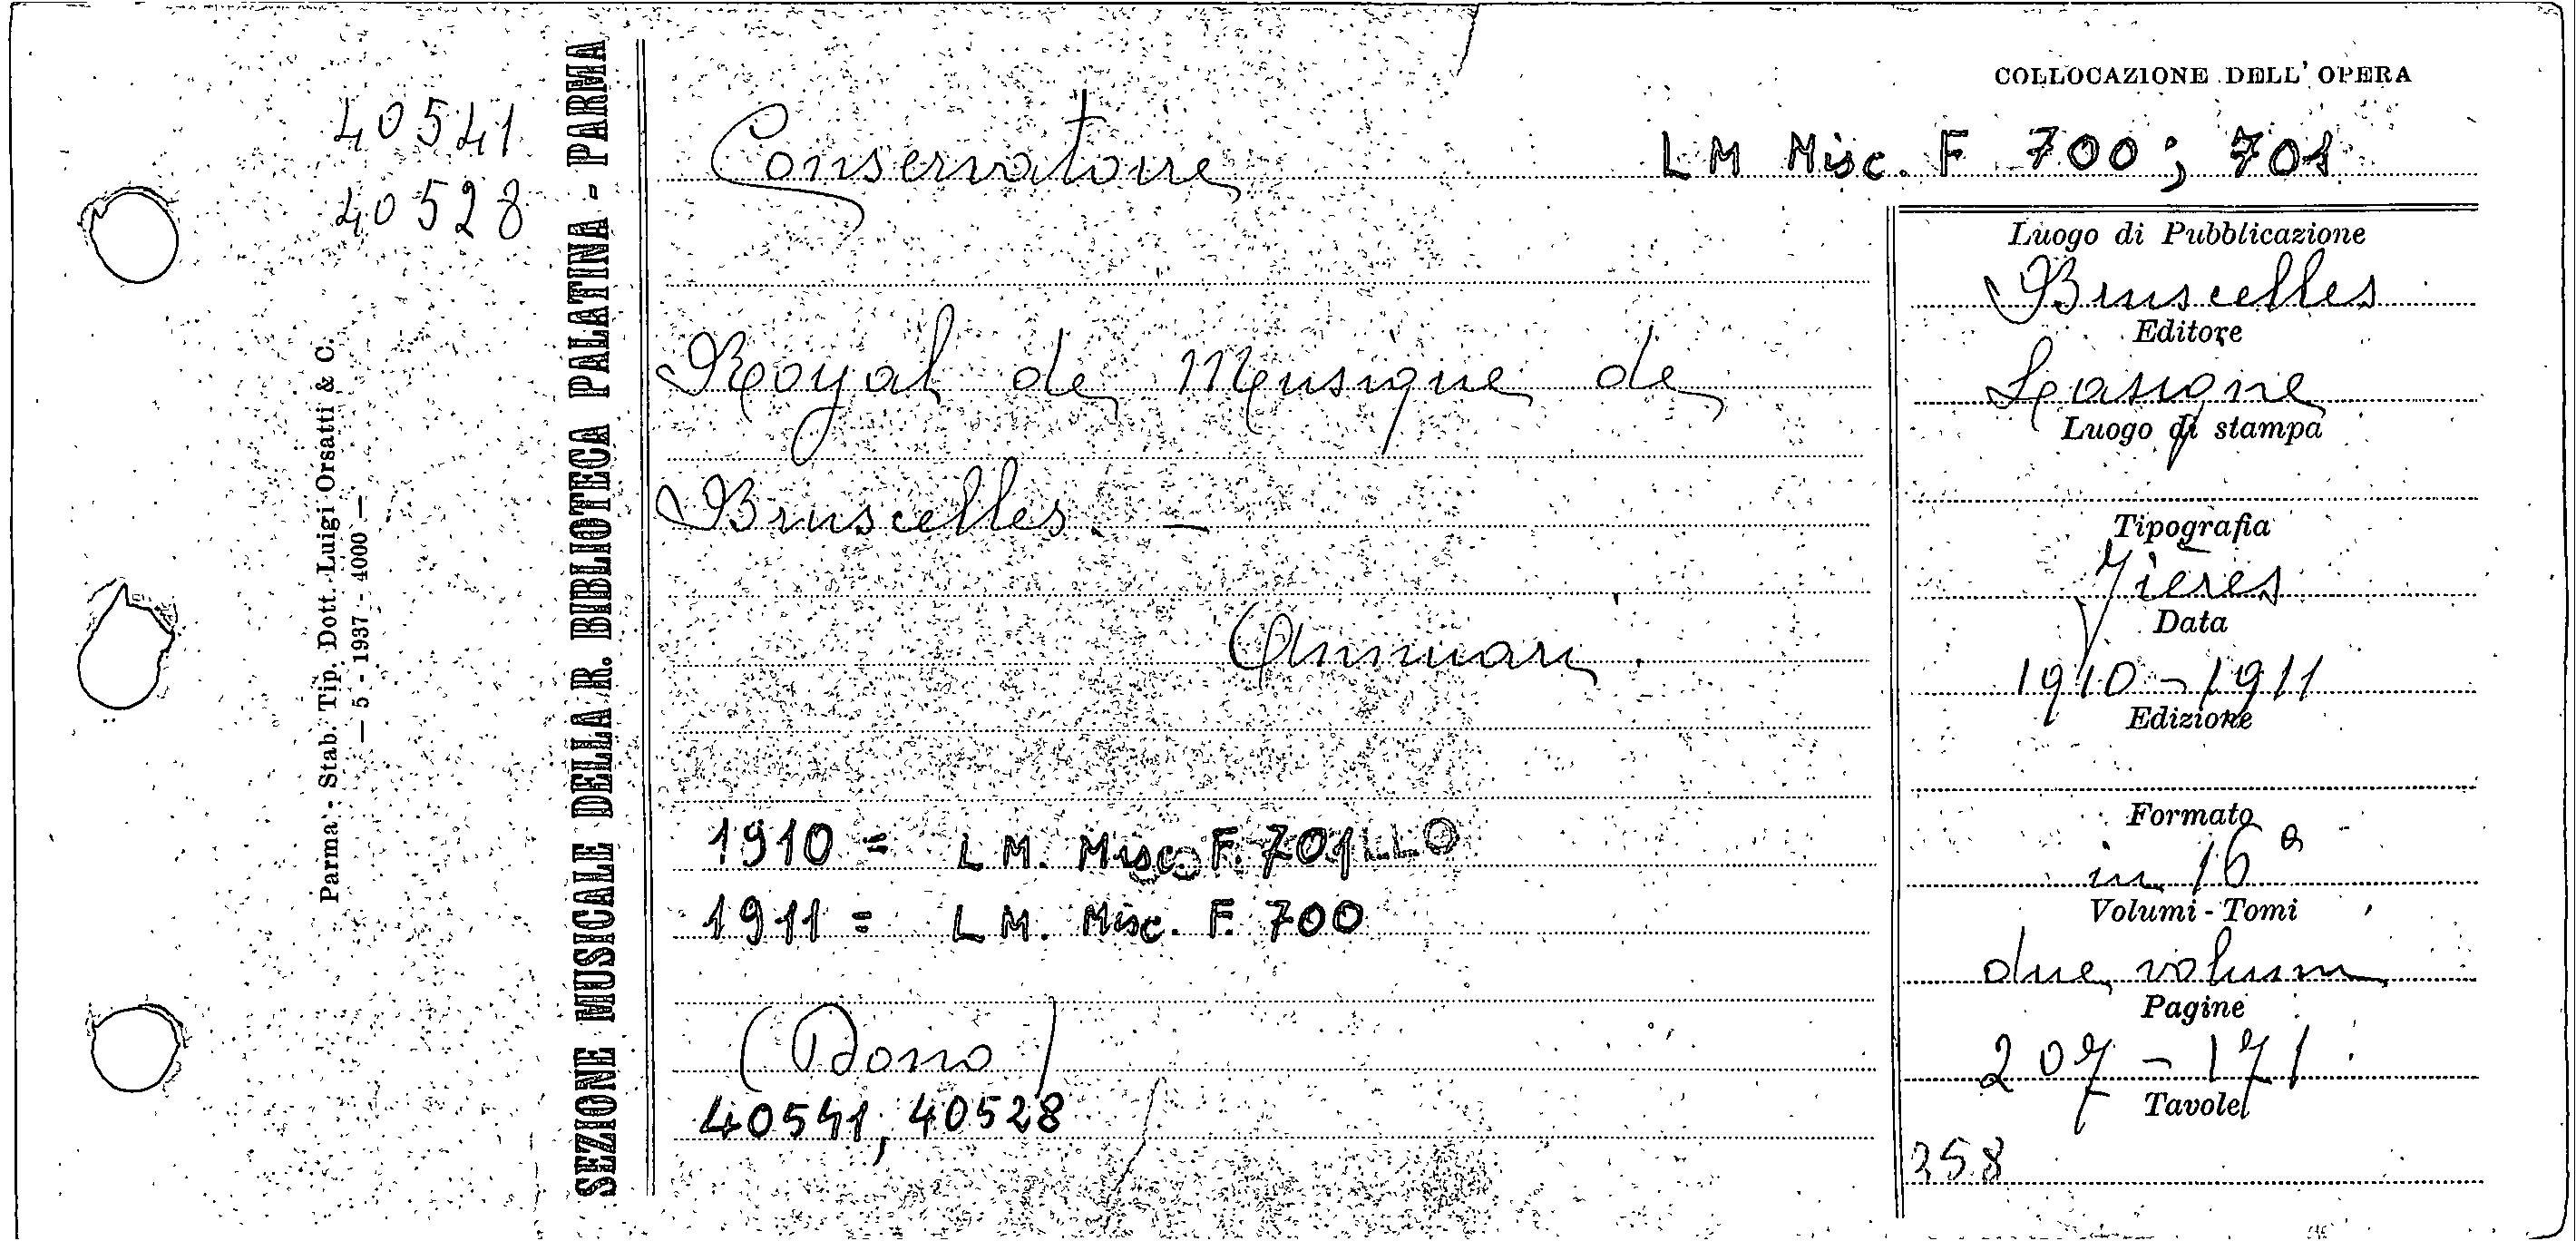 COLLOCAZIONE DELL' OPERA
40541
40528
Parma - Stab. Tip. Dott. Luigi Orsatti & C.
— 5 - 1937 - 4000 —
SEZIONE MUSICALE DELLA R. BIBLIOTECA PALATINA - PARMA
Conservatoire
LM Misc. F 700; 701
Royal de Musique de
Bruscelles. –
Annuari
1910 = LM. Misc. F. 701
1911 = LM. Misc. F. 700
(Dono)
40541, 40528
Luogo di Pubblicazione
Bruscelles
Editore
Luogo di stampa
Tipografia
Data
1910 - 1911
Edizione
Formato
in 16°
Volumi - Tomi
due volumi
Pagine
207 - 171
Tavole
358